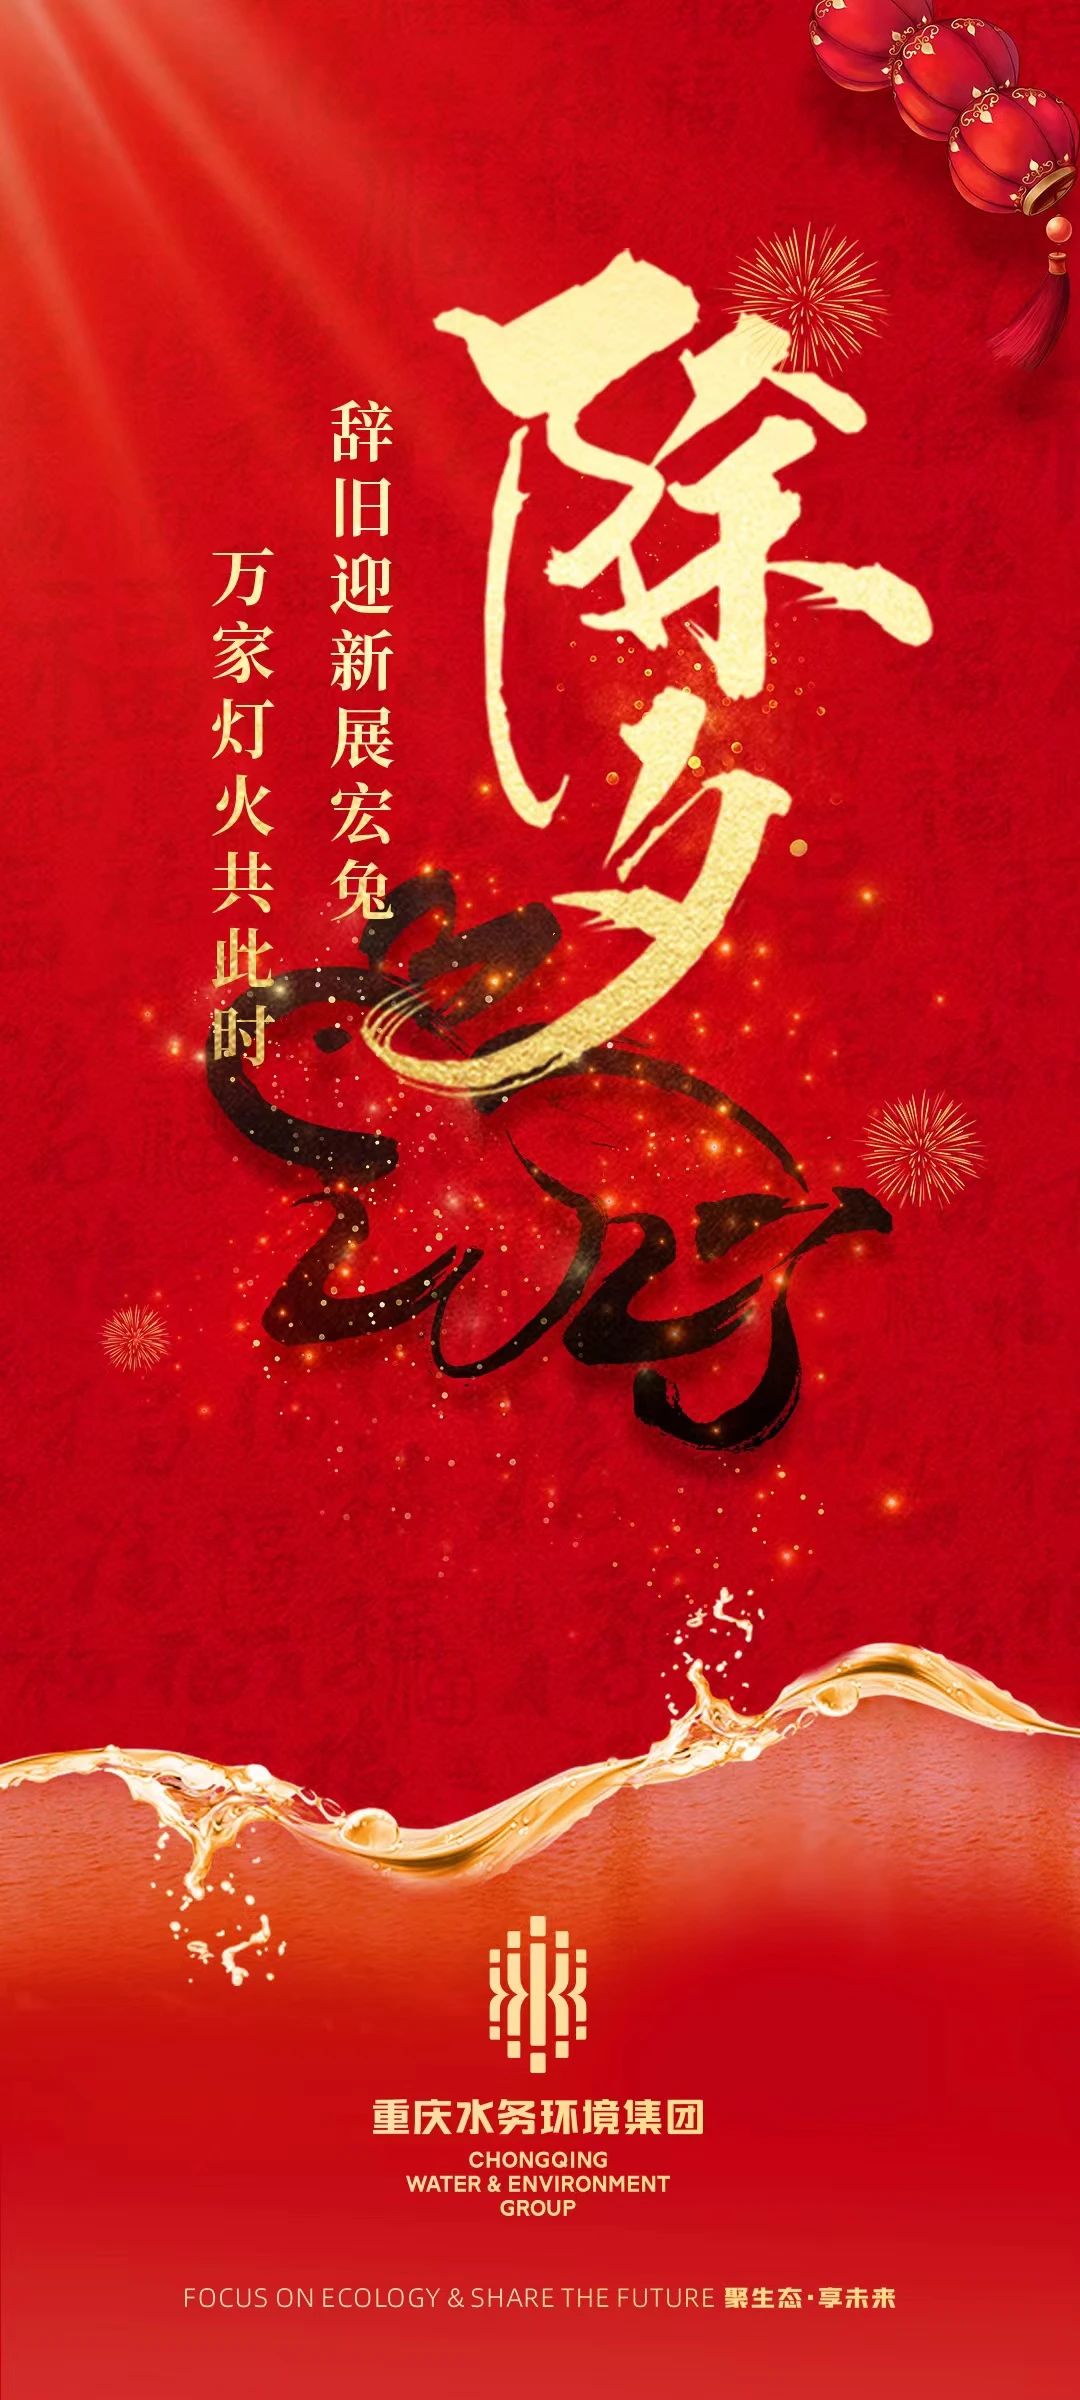 除夕
辞旧迎新展宏兔
万家灯火共此时
重庆水务环境集团
CHONGQING
WATER & ENVIRONMENT
GROUP
FOCUS ON ECOLOGY & SHARE THE FUTURE 聚生态·享未来